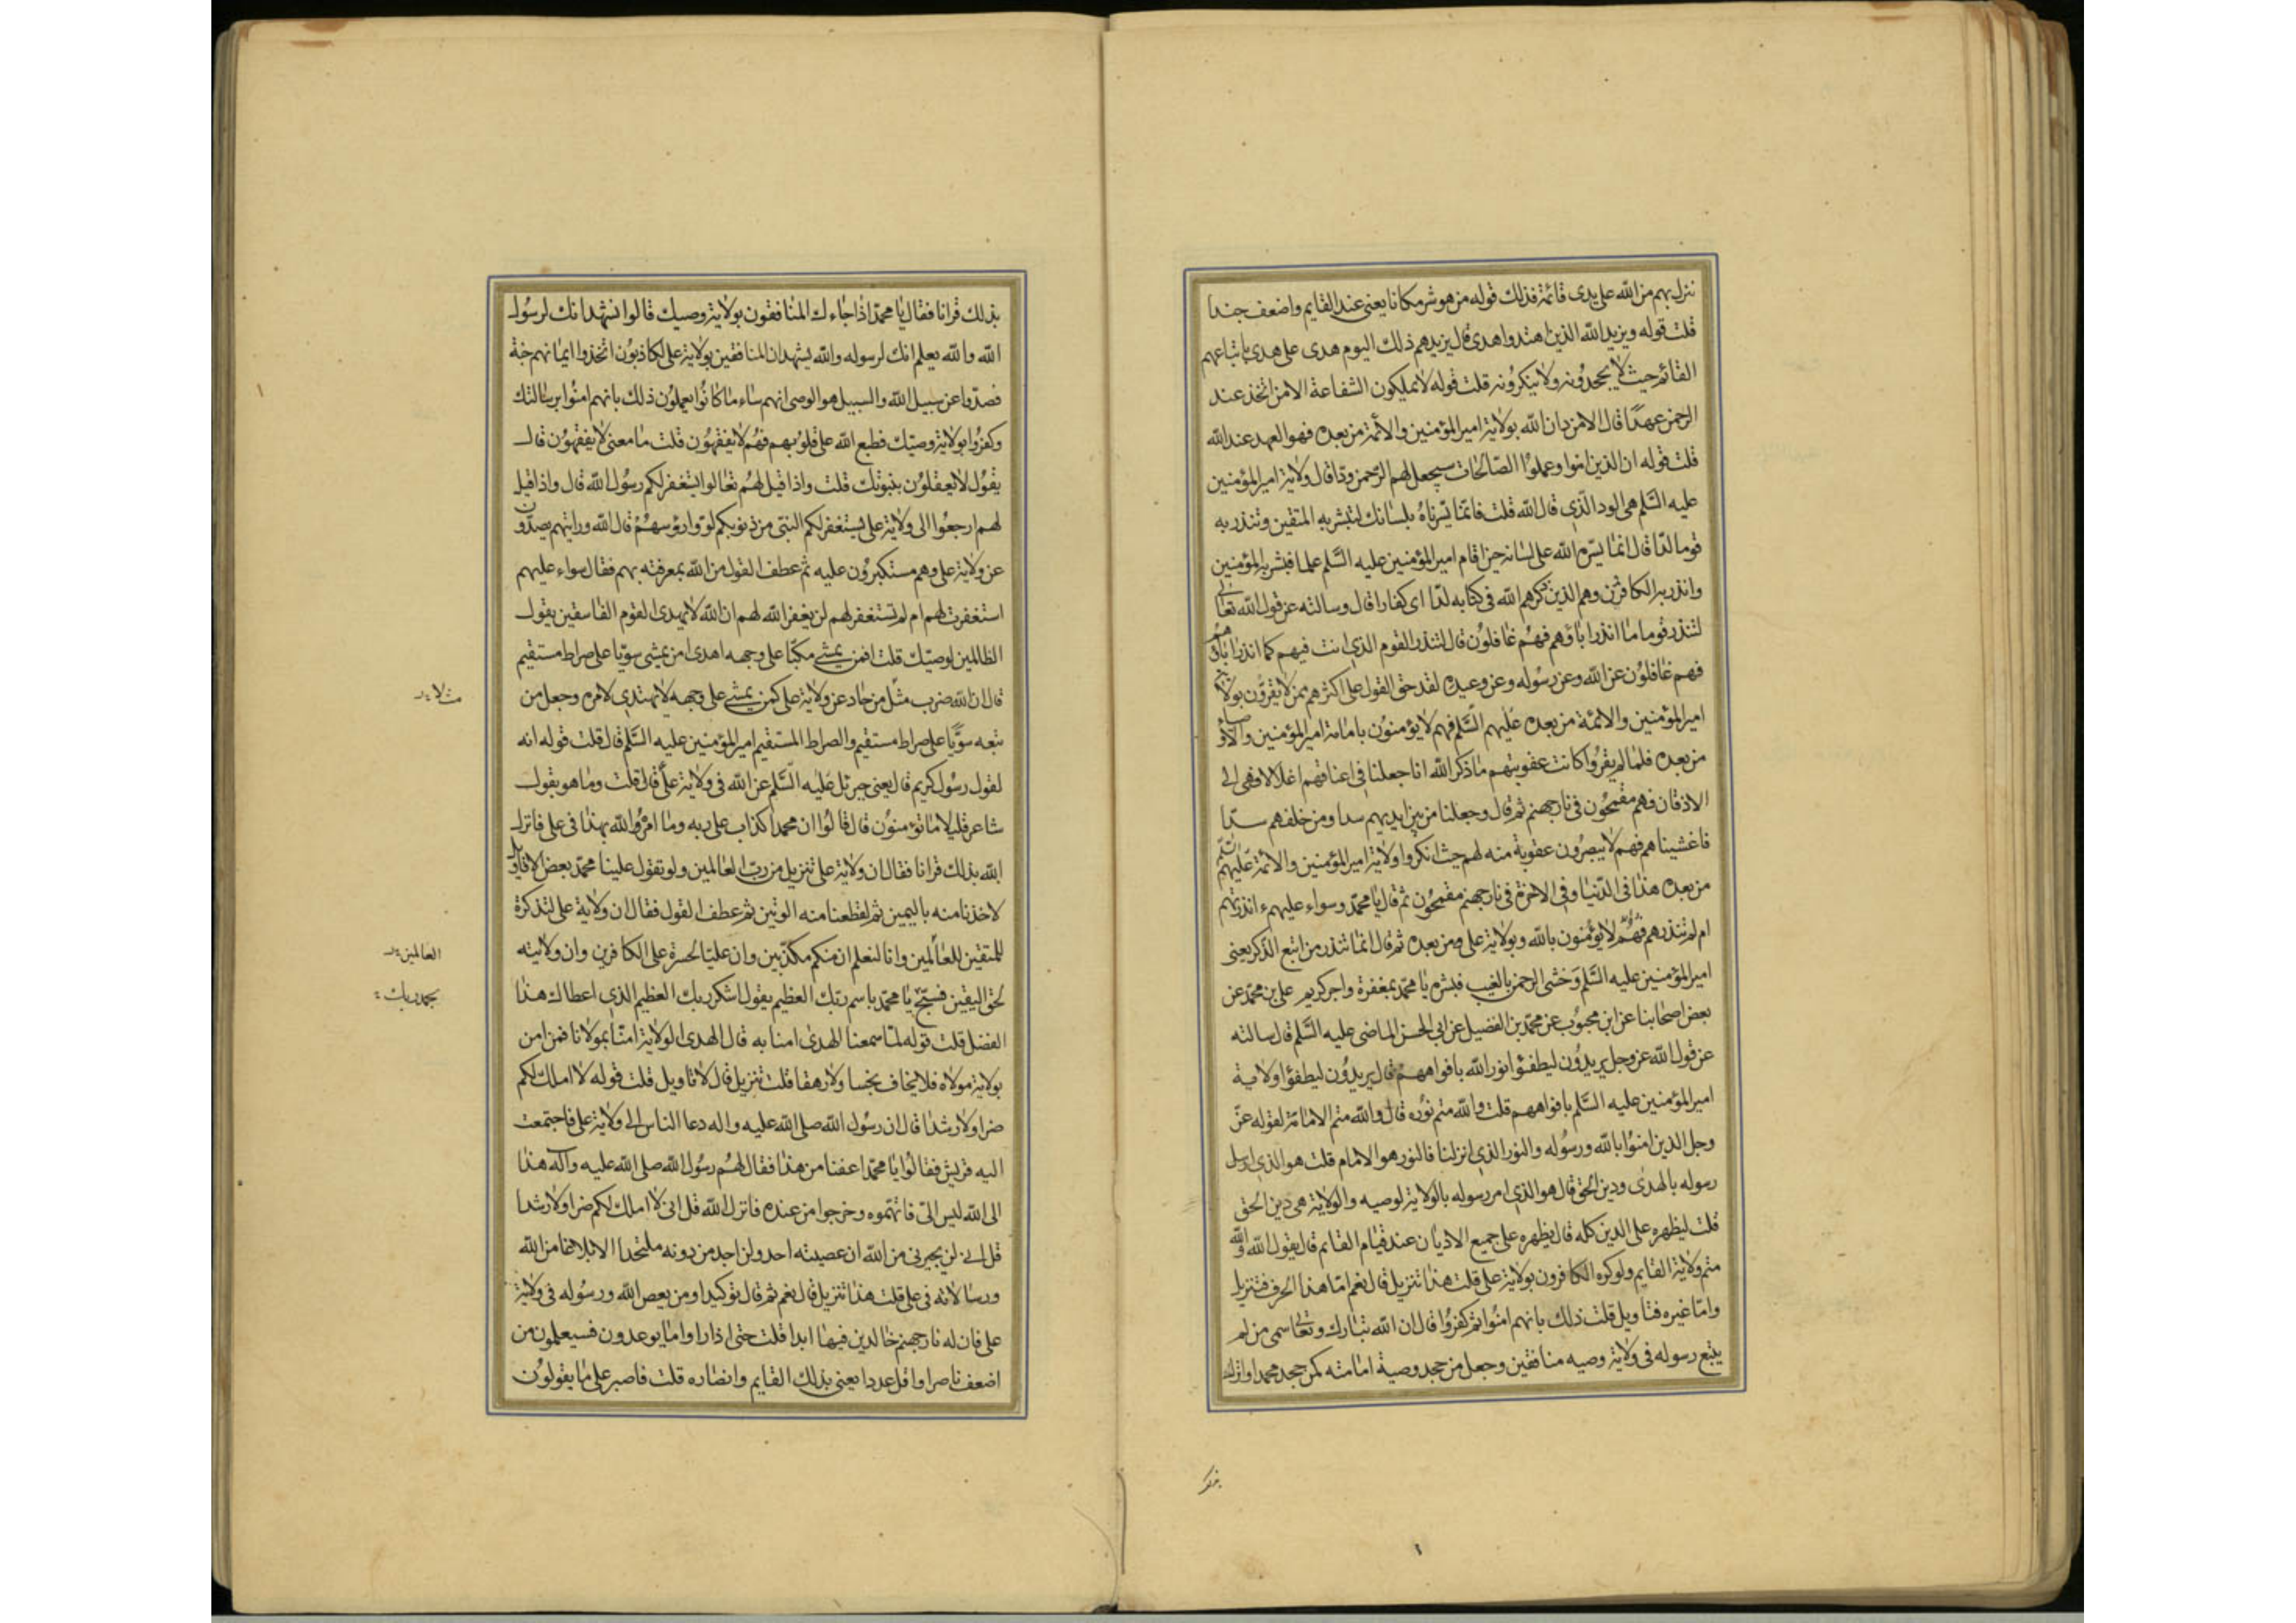 ننزل بهم من الله على يدى قائمه فذلك قوله من هو شر مكانا يعنى عند القايم واضعف جندا
قلت قوله ويزيد الله الذين اهتدوا هدى قال يزيدهم ذلك اليوم هدى على هدى باتباعهم
القائم حيث لا يجحدونه ولا ينكرونه قلت قوله لا يملكون الشفاعة الا من اتخذ عند
الرحمن عهدا قال الا من دان الله بولاية امير المؤمنين والأئمة من بعده فهو العهد عند الله
قلت قوله ان الذين امنوا وعملوا الصالحات سيجعل لهم الرحمن ودا قال ولاية امير المؤمنين
عليه السلم هى الود الذى قال الله قلت فانما يسرناه بلسانك لتبشر به المتقين وتنذر به
قوما لدا قال انما يسره الله على لسانه حين اقام امير المؤمنين عليه السلم علما فبشر به المؤمنين
وانذر به الكافرين وهم الذين ذكرهم الله فى كتابه لدا اى كفارا قال وسالته عن قول الله تعالى
لتنذر قوما ما انذر اباؤهم فهم غافلون قال لتنذر القوم الذى انت فيهم كما انذر اباؤهم
فهم غافلون عن الله وعن رسوله وعن وعيده لقد حق القول على اكثرهم ممن لا يقرون بولاية
امير المؤمنين والائمة من بعده عليهم السلم فهم لا يؤمنون بامامة امير المؤمنين والاوصياء
من بعده فلما لم يقروا كانت عقوبتهم ما ذكر الله انا جعلنا فى اعناقهم اغلالا فهى الى
الاذقان فهم مقمحون فى نار جهنم ثم قال وجعلنا من بين ايديهم سدا ومن خلفهم سدا
فاغشيناهم فهم لا يبصرون عقوبة منه لهم حيث انكروا ولاية امير المؤمنين والائمة عليهم السلم
من بعده هذا فى الدنيا وفى الاخرة فى نار جهنم مقمحون ثم قال يا محمد وسواء عليهم ءانذرتهم
ام لم تنذرهم فهم لا يؤمنون بالله وبولاية على ومن بعده ثم قال انما تنذر من اتبع الذكر يعنى
امير المؤمنين عليه السلم وخشى الرحمن بالغيب فبشره يا محمد بمغفرة واجر كريم على بن محمد عن
بعض اصحابنا عن ابن محبوب عن محمد بن الفضيل عن ابى الحسن الماضى عليه السلم قال سالته
عن قول الله عز وجل يريدون ليطفؤا نور الله بافواههم قال يريدون ليطفؤا ولاية
امير المؤمنين عليه السلم بافواههم قلت والله متم نوره قال والله متم الامامة لقوله عز
وجل الذين امنوا بالله ورسوله والنور الذى انزلنا فالنور هو الامام قلت هو الذى ارسل
رسوله بالهدى ودين الحق قال هو الذى امر رسوله بالولاية لوصيه والولاية هى دين الحق
قلت ليظهره على الدين كله قال يظهره على جميع الاديان عند قيام القايم قال يقول الله والله
متم ولاية القايم ولو كره الكافرون بولاية على قلت هذا تنزيل قال نعم اما هذا الحرف فتنزيل
واما غيره فتاويل قلت ذلك بانهم امنوا ثم كفروا قال ان الله تبارك وتعالى سمى من لم
يتبع رسوله فى ولاية وصيه منافقين وجعل من جحد وصية امامته كمن جحد محمدا وانزل
بذلك قرانا فقال يا محمد اذا جاءك المنافقون بولاية وصيك قالوا نشهد انك لرسول
الله والله يعلم انك لرسوله والله يشهد ان المنافقين بولاية على لكاذبون اتخذوا ايمانهم جنة
فصدوا عن سبيل الله والسبيل هو الوصى انهم ساء ما كانوا يعملون ذلك بانهم امنوا برسالتك
وكفروا بولاية وصيك فطبع الله على قلوبهم فهم لا يفقهون قلت ما معنى لا يفقهون قال
يقول لا يعقلون بنبوتك قلت واذا قيل لهم تعالوا يستغفر لكم رسول الله قال واذا قيل
لهم ارجعوا الى ولاية على يستغفر لكم النبى من ذنوبكم لووا رؤسهم قال الله ورايتهم يصدون
عن ولاية على وهم مستكبرون عليه ثم عطف القول من الله بمعرفته بهم فقال سواء عليهم
استغفرت لهم ام لم تستغفر لهم لن يغفر الله لهم ان الله لا يهدى القوم الفاسقين يقول
الظالمين لوصيك قلت افمن يمشى مكبا على وجهه اهدى امن يمشى سويا على صراط مستقيم
قال ان الله ضرب مثل من حاد عن ولاية على كمن يمشى على وجهه لا يهتدى لامره وجعل من
تبعه سويا على صراط مستقيم والصراط المستقيم امير المؤمنين عليه السلم قال قلت قوله انه
لقول رسول كريم قال يعنى جبرئل عليه السلم عن الله فى ولاية على قال قلت وما هو بقول
شاعر قليلا ما تؤمنون قال قالوا ان محمدا كذاب على ربه وما امره الله بهذا فى على فانزل
الله بذلك قرانا فقال ان ولاية على تنزيل من رب العالمين ولو تقول علينا محمد بعض الاقاويل
لاخذنا منه باليمين ثم لقطعنا منه الوتين ثم عطف القول فقال ان ولاية على لتذكرة
للمتقين للعالمين وانا لنعلم ان منكم مكذبين وان عليا لحسرة على الكافرين وان ولايته
لحق اليقين فسبح يا محمد باسم ربك العظيم يقول اشكر ربك العظيم الذى اعطاك هذا
الفضل قلت قوله لما سمعنا الهدى امنا به قال الهدى الولاية امنا بمولانا فمن امن
بولاية مولاه فلا يخاف بخسا ولا رهقا قلت تنزيل قال لا تاويل قلت قوله لا املك لكم
ضرا ولا رشدا قال ان رسول الله صلى الله عليه واله دعا الناس الى ولاية على فاجتمعت
اليه قريش فقالوا يا محمد اعفنا من هذا فقال لهم رسول الله صلى الله عليه وآله هذا
الى الله ليس الى فاتهموه وخرجوا من عنده فانزل الله قل انى لا املك لكم ضرا ولا رشدا
قل انى لن يجيرنى من الله ان عصيته احد ولن اجد من دونه ملتحدا الا بلاغا من الله
ورسالاته فى على قلت هذا تنزيل قال نعم ثم قال توكيدا ومن يعص الله ورسوله فى ولاية
على فان له نار جهنم خالدين فيها ابدا قلت حتى اذا راوا ما يوعدون فسيعلمون من
اضعف ناصرا واقل عددا يعنى بذلك القايم وانصاره قلت فاصبر على ما يقولون
العالمين